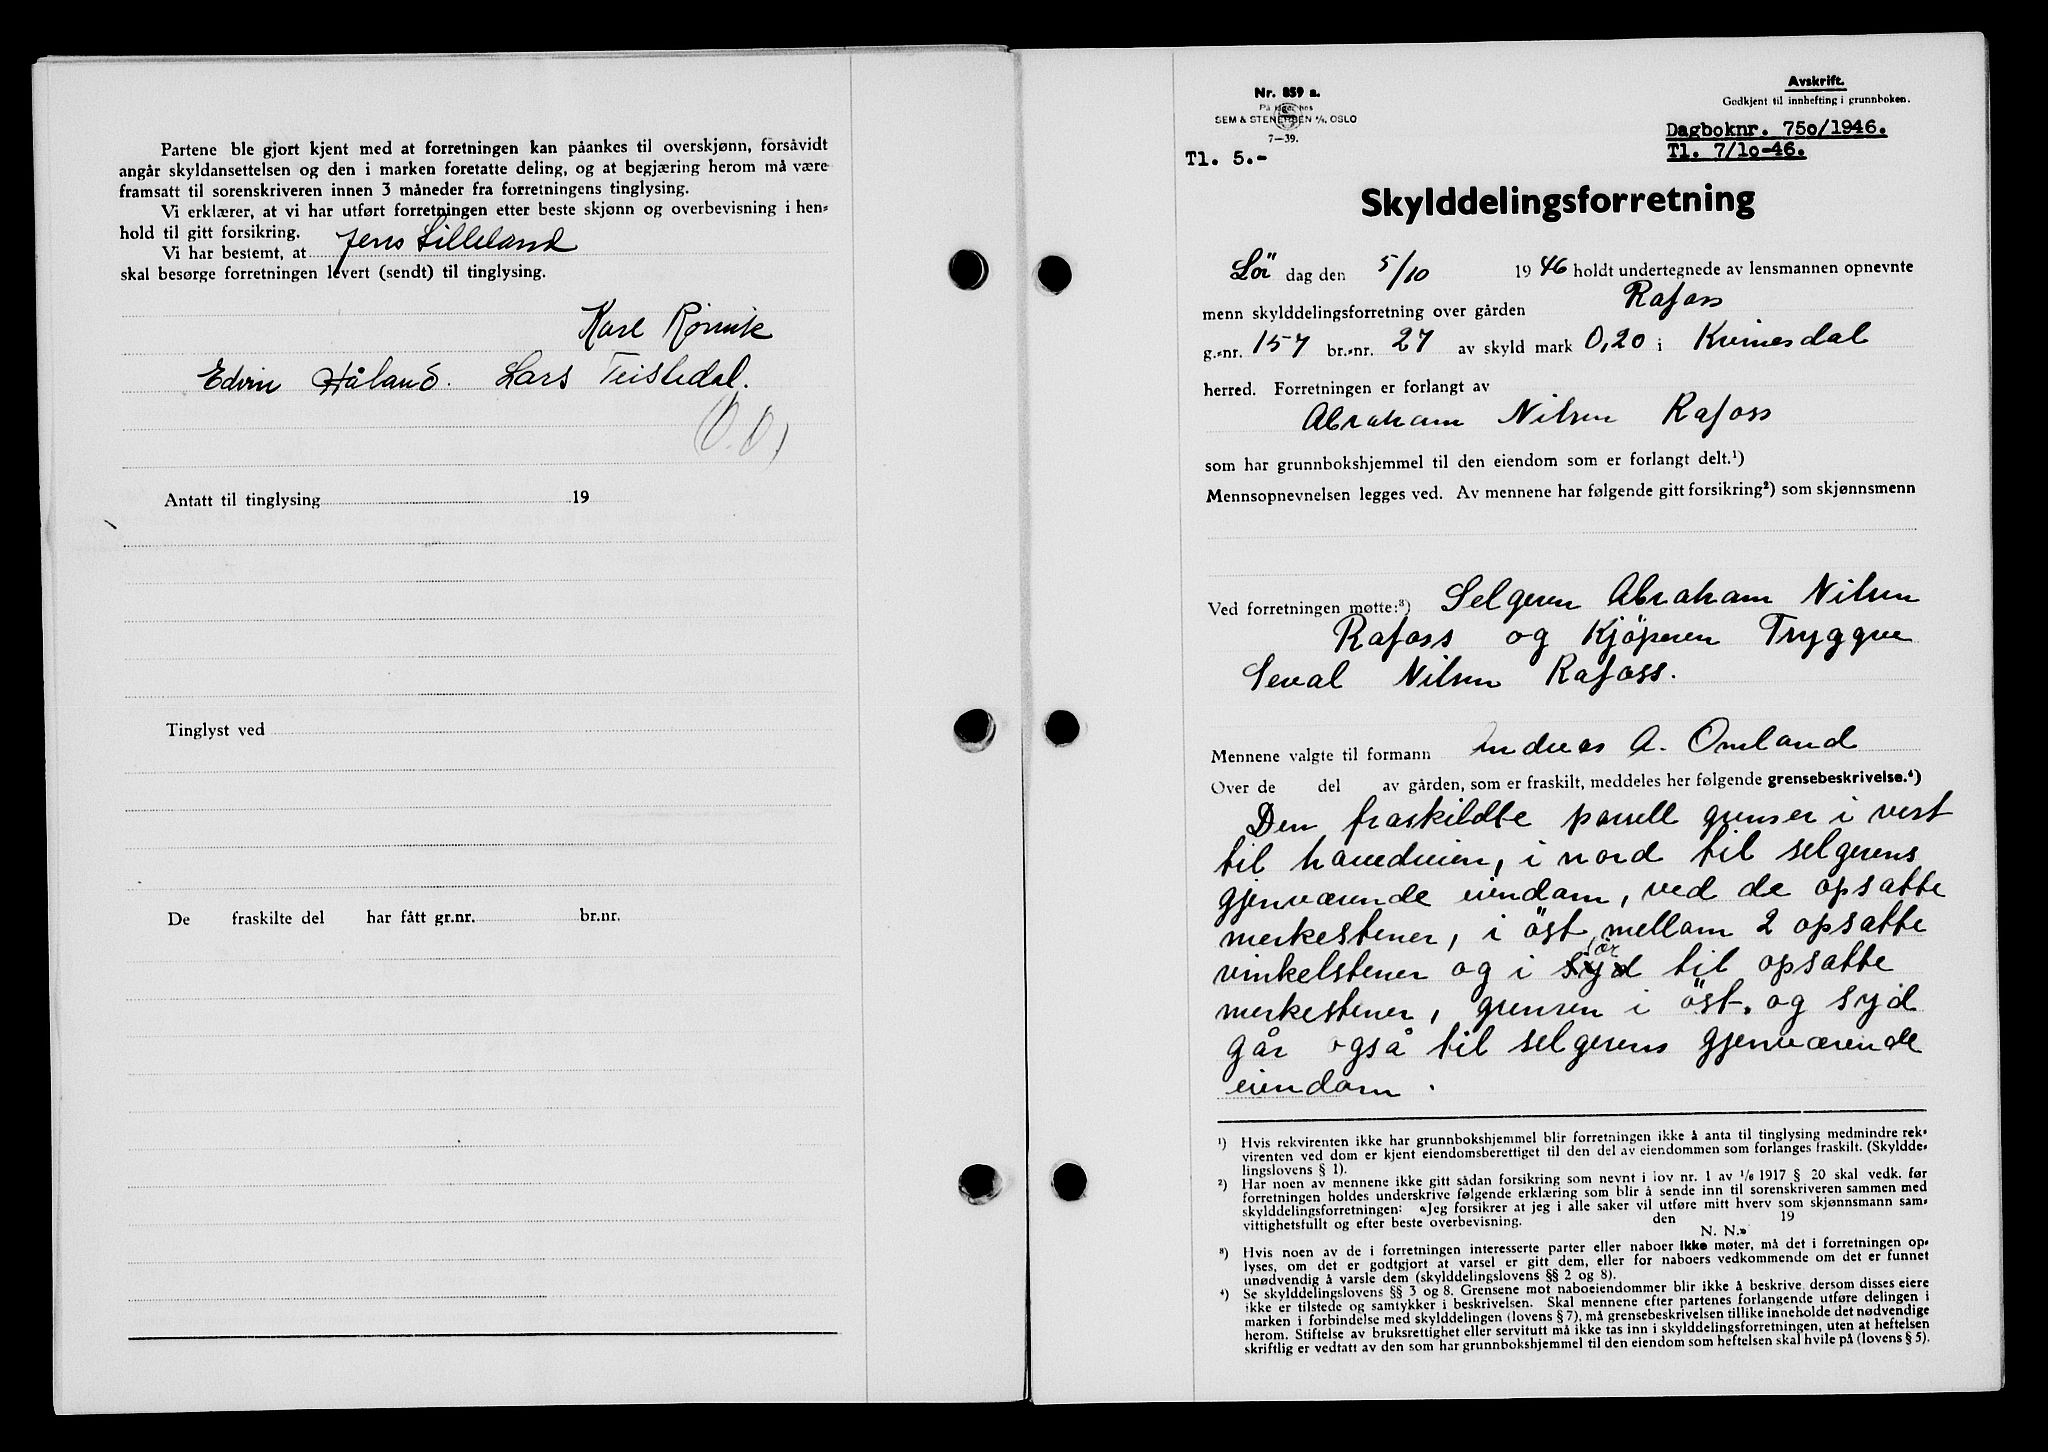 Partene ble gjort kjent med at forretningen kan påankes til overskjønn, forsåvidt
angår skyldansettelsen og den i marken foretatte deling, og at begjæring herom må være
framsatt til sorenskriveren innen 3 måneder fra forretningens tinglysing.
Vi erklærer, at vi har utført forretningen etter beste skjønn og overbevisning i hen=
hold til gitt forsikring.
Vi har bestemt, at Jens Lilleland
skal besørge forretningen levert (sendt) til tinglysing.
Karl Rørvik
Edvin Håland. Lars Teistedal.
Antatt til tinglysing 19
Tinglyst ved
De fraskilte del har fått gr.nr. br.nr.
Avskrift.
Nr. 859 a.
Godkjent til innhefting i grunnboken.
På lager hos
SEM & STENERSEN A/S, OSLO
7—39.
Dagboknr. 750/1946.
Tl. 7/10-46.
Tl. 5.-
Skylddelingsforretning
Lör dag den 5/10 1946 holdt undertegnede av lensmannen opnevnte
menn skylddelingsforretning over gården Rafoss
g.=nr. 157 br.=nr. 27 av skyld mark 0,20 i Kvinesdal
herred. Forretningen er forlangt av
Abraham Nilsen Rafoss
som har grunnbokshjemmel til den eiendom som er forlangt delt.¹)
Mennsopnevnelsen legges ved. Av mennene har følgende gitt forsikring²) som skjønnsmenn
Ved forretningen møtte:³) Selgeren Abraham Nilsen
Rafoss og Kjöperen Tryggve
Seval Nilsen Rafoss.
Mennene valgte til formann Andreas A. Omland
Over de del av gården, som er fraskilt, meddeles her følgende grensebeskrivelse.⁴)
Den fraskildte parsell grenser i vest
til havedveien, i nord til selgerens
gjenværende eiendom, ved de opsatte
merkestener, i öst mellom 2 opsatte
vinkelstener og i syd til opsatte
merkestener, grensen i öst. og syd
går også til selgerens gjenværende
eiendom.
¹) Hvis rekvirenten ikke har grunnbokshjemmel blir forretningen ikke å anta til tinglysing medmindre rek=
virenten ved dom er kjent eiendomsberettiget til den del av eiendommen som forlanges fraskilt. (Skyldde=
lingslovens § 1).
²) Har noen av mennene ikke gitt sådan forsikring som nevnt i lov nr. 1 av 1/6 1917 § 20 skal vedk. før
forretningen holdes underskrive følgende erklæring som blir å sende inn til sorenskriveren sammen med
skylddelingsforretningen: «Jeg forsikrer at jeg i alle saker vil utføre mitt hverv som skjønnsmann sam=
vittighetsfullt og efter beste overbevisning. den 19
N. N.»
³) Hvis noen av de i forretningen interesserte parter eller naboer ikke møter, må det i forretningen op=
lyses, om det er godtgjort at varsel er gitt dem, eller for naboers vedkommende om det er funnet
unødvendig å varsle dem (skylddelingslovens §§ 2 og 8).
⁴) Se skylddelingslovens §§ 3 og 8. Grensene mot naboeiendommer blir ikke å beskrive, dersom disses eiere
ikke er tilstede og samtykker i beskrivelsen. Skal mennene efter partenes forlangende utføre delingen i
marken i forbindelse med skylddelingen (lovens § 7), må grensebeskrivelsen tillike inneholde det nødvendige
herom. Stiftelse av bruksrettighet eller servitutt må ikke tas inn i skylddelingsforretningen, uten at heftelsen
skriftlig er vedtatt av den som har grunnbokshjemmel til den eiendom som heftelsen skal hvile på (lovens § 5).